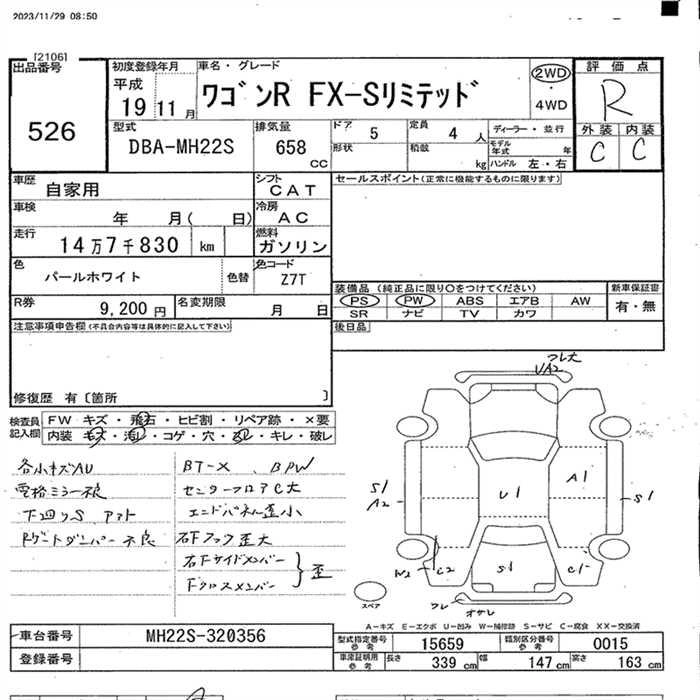 2023/11/29 08:50
[2106]
出品番号
526
初度登録年月
平成
19 11 月
車名・グレード
ワゴンR FX-Sリミテッド
2WD
・
4WD
評価点
R
外装 内装
C C
型式
DBA-MH22S
排気量
658 CC
ドア 5
定員 4 人
形状
積載 kg
ディーラー・並行
モデル年式 年
ハンドル 左・右
車歴 自家用
シフト CAT
車検 年 月( 日)
冷房 AC
走行 14万7千830 km
燃料 ガソリン
色 パールホワイト
色替
色コード Z7T
R券 9,200 円
名変期限 月 日
セールスポイント(正常に機能するものに限ります)
装備品 (純正品に限り〇をつけてください)
新車保証書
PS PW ABS エアB AW
SR ナビ TV カワ
有・無
後日品
注意事項申告欄(不具合内容等は具体的に記入して下さい)
修復歴 有〔箇所 〕
検査員記入欄
FW キズ・飛石・ヒビ割・リペア跡・×要
内装 キズ・汚レ・コゲ・穴・ ・キレ・破レ
各小キズAU
電格ミラー不良
下廻りS アマト
Rゲートダンパー不良
BT-X、BPW
センターフロアC大
エンドパネル歪小
右Fフック歪大
右Fサイドメンバー
Fクロスメンバー
歪
フレ大
UA2
S1
A2
U1
A1
S1
W2
C2
S1
C1
フレ
オサレ
スペア
A-キズ E-エクボ U-凹み W-補修跡 S-サビ C-腐食 XX-交換済
車台番号 MH22S-320356
登録番号
型式指定番号 参考 15659
類別区分番号 参考 0015
車庫証明用 参考
長さ 339 cm
幅 147 cm
高さ 163 cm